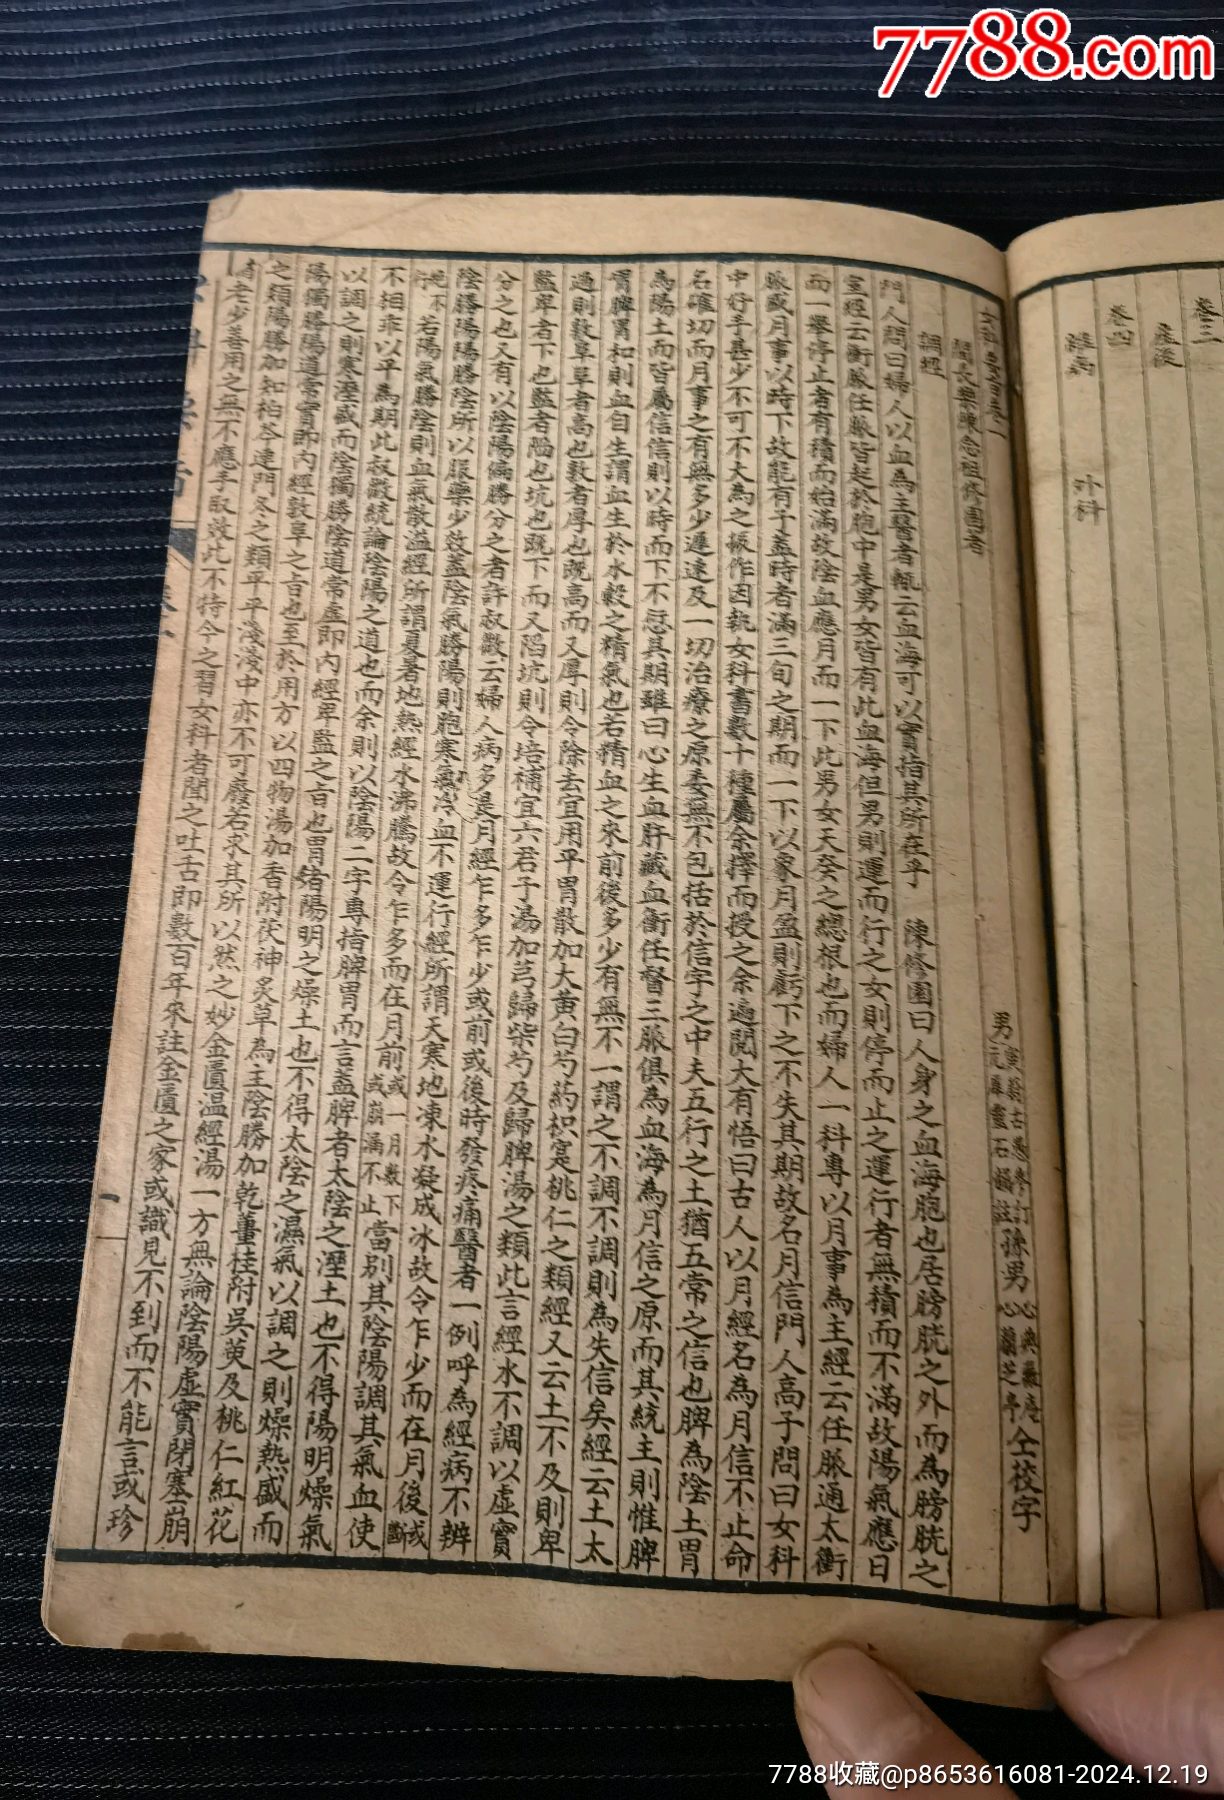 7788.com
卷三
產後
卷四
雜病 外科
女科要旨卷一
閩長樂陳念祖修園著
男 蔚古愚參訂 元犀靈石韻註 孫男 心典徽庵 心蘭芝亭 仝校字
調經
門人問曰婦人以血為主醫者輒云血海可以實指其所在乎 陳修園曰人身之血海胞也居膀胱之外而為膀胱之
室經云衝脈任脈皆起於胞中是男女皆有此血海但男則運而行之女則停而止之運行者無積而不滿故陽氣應日
而一舉停止者有積而始滿故陰血應月而一下此男女天癸之總根也而婦人一科專以月事為主經云任脈通太衝
脈盛月事以時下故能有子蓋時者滿三旬之期而一下以象月盈則虧下之不失其期故名月信門人高子問曰女科
中好手甚少不可不大為之振作因執女科書數十種屬余擇而授之余遍閱大有悟曰古人以月經名為月信不止命
名確切而月事之有無多少遲速及一切治療之原委無不包括於信字之中夫五行之土猶五常之信也脾為陰土胃
為陽土而皆屬信信則以時而下不愆其期雖曰心生血肝藏血衝任督三脈俱為血海為月信之原而其統主則惟脾
胃脾胃和則血自生謂血生於水穀之精氣也若精血之來前後多少有無不一謂之不調不調則為失信矣經云土太
過則敦阜阜者高也敦者厚也既高而又厚則令除去宜用平胃散加大黃白芍藥枳寔桃仁之類經又云土不及則卑
監卑者下也監者陷也坑也既下而又陷坑則令培補宜六君子湯加芎歸柴芍及歸脾湯之類此言經水不調以虛實
分之也又有以陰陽偏勝分之者許叔微云婦人病多是月經乍多乍少或前或後時發疼痛醫者一例呼為經病不辨
陰勝陽陽勝陰所以服藥少效蓋陰氣勝陽則胞寒氣冷血不運行經所謂天寒地凍水凝成冰故令乍少而在月後或斷
絕不行若陽氣勝陰則血氣散溢經所謂夏暑地熱經水沸騰故令乍多而在月前或一月數下或崩漏不止當別其陰陽調其氣血使
不相乖以平為期此叔微統論陰陽之道也而余則以陰陽二字專指脾胃而言蓋脾者太陰之溼土也不得陽明燥氣
以調之則寒溼盛而陰獨勝陰道常虛即內經卑監之旨也胃者陽明之燥土也不得太陰之濕氣以調之則燥熱盛而
陽獨勝陽道常實即內經敦阜之旨也至於用方以四物湯加香附茯神炙草為主陰勝加乾薑桂附吳萸及桃仁紅花
之類陽勝加知柏芩連門冬之類平平淺淺中亦不可廢若求其所以然之妙金匱溫經湯一方無論陰陽虛實閉塞崩
老少善用之無不應手取效此不特今之習女科者聞之吐舌即數百年來註金匱之家或識見不到而不能言或珍
7788收藏@p8653616081-2024.12.19